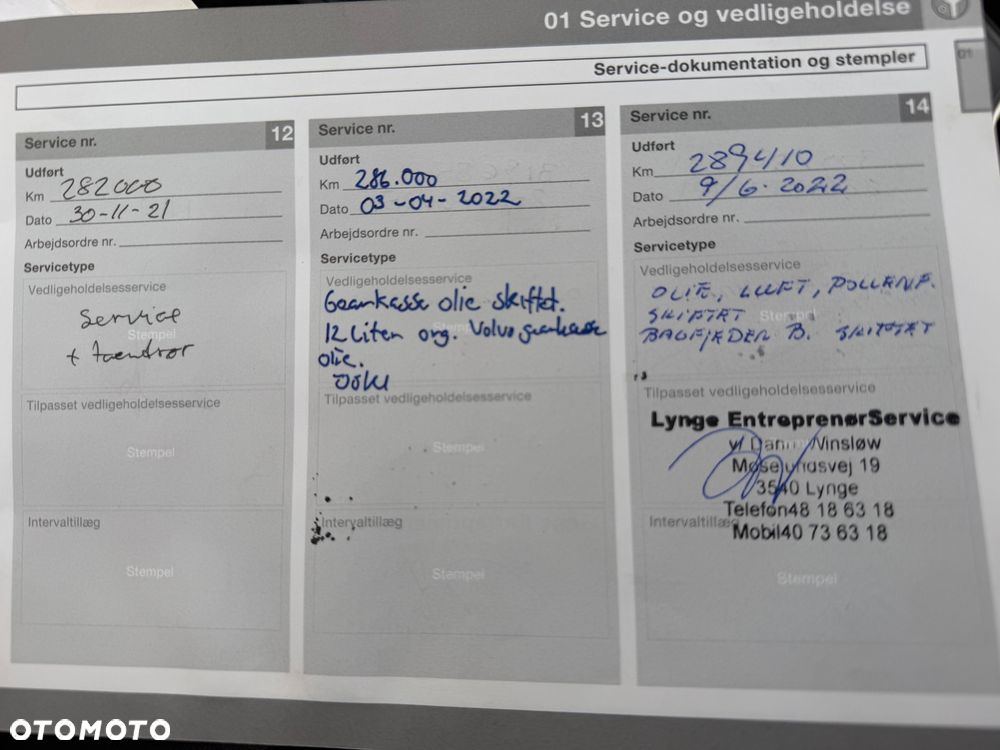 01 Service og vedligeholdelse
01
Service-dokumentation og stempler
Service nr. 12
Udført
Km 282000
Dato 30-11-21
Arbejdsordre nr.
Servicetype
Vedligeholdelsesservice
Service
Stempel
+ taendror
Tilpasset vedligeholdelsesservice
Stempel
Intervaltillæg
Stempel
Service nr. 13
Udført
Km 286.000
Dato 03-04-2022
Arbejdsordre nr.
Servicetype
Vedligeholdelsesservice
Gearkasse olie skiftet.
12 Liter org. Volvo gearkasse
olie.
Tilpasset vedligeholdelsesservice
Stempel
Intervaltillæg
Stempel
Service nr. 14
Udført
Km 289410
Dato 9/6-2022
Arbejdsordre nr.
Servicetype
Vedligeholdelsesservice
OLIE, LUFT, POLLENF.
SKIFTET
Stempel
BAGFJEDER B. SKIFTET
Tilpasset vedligeholdelsesservice
Lynge EntreprenørService
v/ Danny Vinsløw
Moselundsvej 19
3540 Lynge
Telefon48 18 63 18
Intervaltillæg
Mobil40 73 63 18
Stempel
OTOMOTO